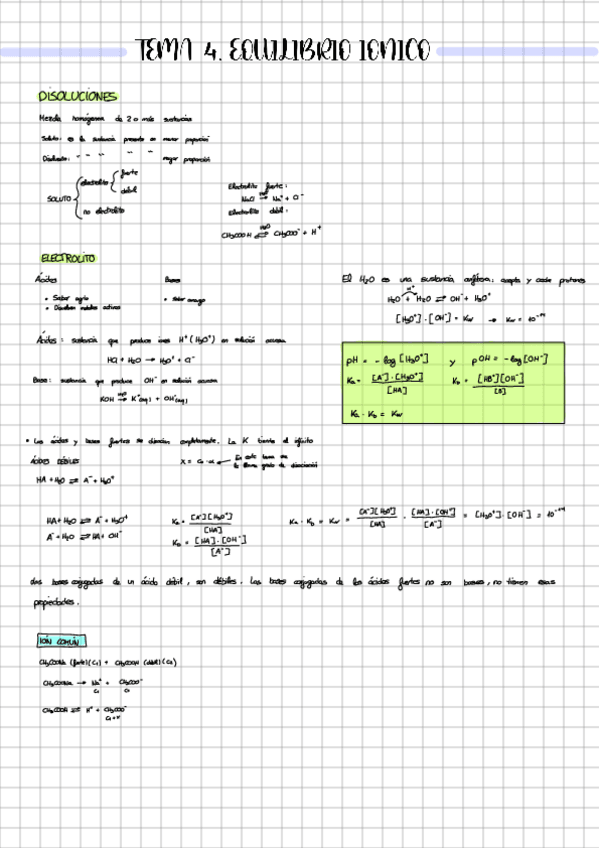 TEMA 4. EQUILIBRIO IONICO
DISOLUCIONES
Mezcla homógenea de 2 o más sustancias
Soluto: es la sustancia presente en menor proporción
Disolvente: " " " " " mayor proporción
SOLUTO { electrolito { fuerte
débil
no electrolito
Electrolito fuerte:
NaCl →(H₂O) Na⁺ + Cl⁻
Electrolito débil:
CH₃COOH ⇌(H₂O) CH₃COO⁻ + H⁺
ELECTROLITO
Ácidos
• Sabor agrio
• Disuelven metales activos
Bases
• Sabor amargo
El H₂O es una sustancia anfótera: acepta y cede protones
H⁺
H₂O + H₂O ⇌ OH⁻ + H₃O⁺
[H₃O⁺] · [OH⁻] = Kw → Kw = 10⁻¹⁴
Ácidos: sustancia que produce iones H⁺ (H₃O⁺) en solución acuosa
HCl + H₂O → H₃O⁺ + Cl⁻
Base: sustancia que produce OH⁻ en solución acuosa
KOH →(H₂O) K⁺(aq) + OH⁻(aq)
pH = - log [H₃O⁺] y pOH = - log [OH⁻]
Ka = [A⁻]·[H₃O⁺] / [HA] Kb = [HB⁺][OH⁻] / [B]
Ka · Kb = Kw
• Los ácidos y bases fuertes se disocian completamente. La K tiende al infinito
ÁCIDOS DÉBILES X = C₀ · α ← En este tema se le llama grado de disociación
HA + H₂O ⇌ A⁻ + H₃O⁺
HA + H₂O ⇌ A⁻ + H₃O⁺
A⁻ + H₂O ⇌ HA + OH⁻
Ka = [A⁻][H₃O⁺] / [HA]
Kb = [HA]·[OH⁻] / [A⁻]
Ka · Kb = Kw = [A⁻][H₃O⁺] / [HA] · [HA]·[OH⁻] / [A⁻] = [H₃O⁺]·[OH⁻] = 10⁻¹⁴
Las bases conjugadas de un ácido débil, son débiles. Las bases conjugadas de los ácidos fuertes no son bases, no tienen esas
propiedades.
IÓN COMÚN
CH₃COONa (fuerte)(C₁) + CH₃COOH (débil)(C₂)
CH₃COONa → Na⁺ + CH₃COO⁻
C₁ C₁
CH₃COOH ⇌ H⁺ + CH₃COO⁻
C₁+X